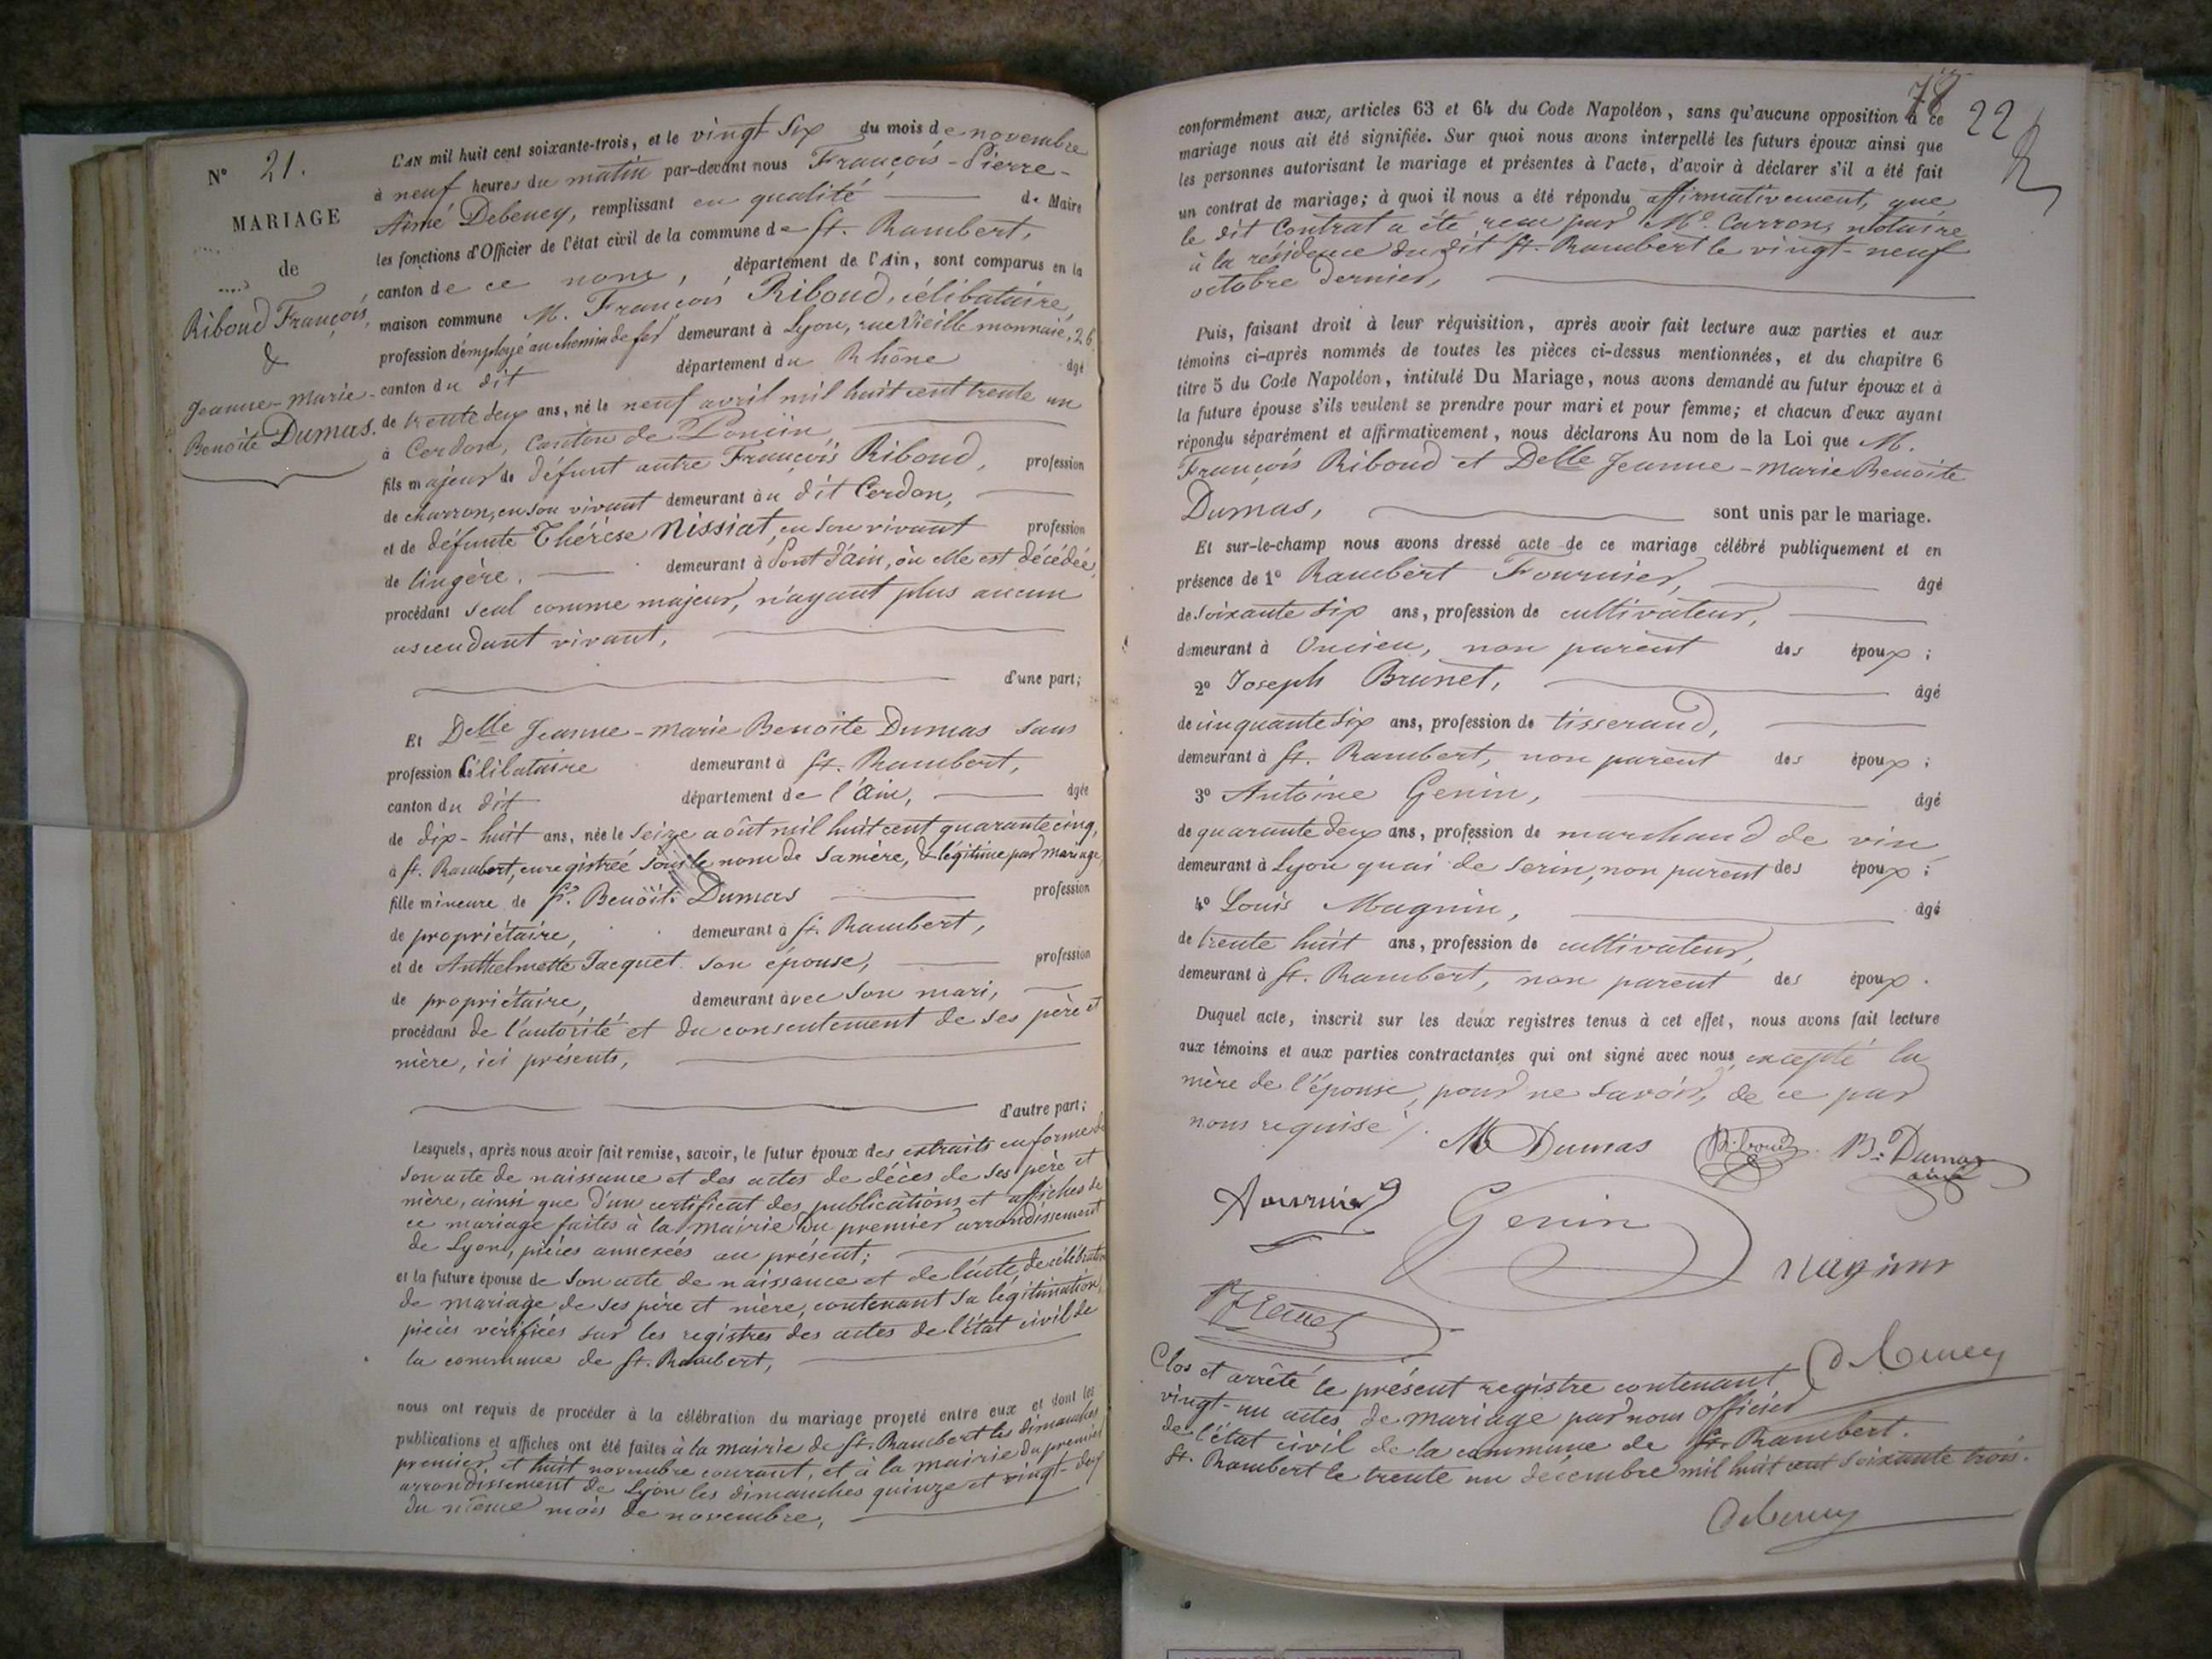 N° 21.
MARIAGE
de
Riboud François,
&
Jeanne-Marie-
Benoite Dumas.
L'AN mil huit cent soixante-trois, et le vingt six du mois de novembre
à neuf heures du matin par-devant nous François-Pierre-
Aimé Debeney, remplissant en qualité de Maire
les fonctions d'Officier de l'état civil de la commune de St. Rambert,
canton de ce nom, département de l'Ain, sont comparus en la
maison commune M. François Riboud, célibataire,
profession d'employé au chemin de fer demeurant à Lyon, rue Vieille monnaie, 26
canton du dit département du Rhône âgé
de trente deux ans, né le neuf avril mil huit cent trente un
à Cerdon, canton de Poncin,
fils majeur de défunt autre François Riboud, profession
de charron, en son vivant demeurant au dit Cerdon,
et de défunte Thérèse Nissiat, en son vivant profession
de lingère. demeurant à Pont d'ain, où elle est décédée,
procédant seul comme majeur, n'ayant plus aucun
ascendant vivant,
d'une part;
Et Delle Jeanne-Marie Benoite Dumas sans
profession Célibataire demeurant à St. Rambert,
canton du dit département de l'Ain, âgée
de dix-huit ans, née le seize août mil huit cent quarante cinq,
à St. Rambert, enregistrée sous le nom de sa mère, & légitimé par mariage,
fille mineure de Sr. Benoît Dumas profession
de propriétaire, demeurant à St. Rambert,
et de Anthelmette Jacquet son épouse, profession
de propriétaire, demeurant avec son mari,
procédant de l'autorité et du consentement de ses père et
mère, ici présents,
d'autre part;
Lesquels, après nous avoir fait remise, savoir, le futur époux des extraits en forme de
son acte de naissance et des actes de décès de ses père et
mère, ainsi que d'un certificat des publications et affiches de
ce mariage faites à la mairie du premier arrondissement
de Lyon, pièces annexées au présent;
et la future épouse de son acte de naissance et de l'acte de célébration
de mariage de ses père et mère, contenant sa légitimation,
pièces vérifiées sur les registres des actes de l'état civil de
la commune de St. Rambert,
nous ont requis de procéder à la célébration du mariage projeté entre eux et dont les
publications et affiches ont été faites à la mairie de St. Rambert les dimanches
premier et huit novembre courant, et à la mairie du premier
arrondissement de Lyon les dimanches quinze et vingt-deux
du même mois de novembre,
78
22
conformément aux, articles 63 et 64 du Code Napoléon, sans qu'aucune opposition à ce
mariage nous ait été signifiée. Sur quoi nous avons interpellé les futurs époux ainsi que
les personnes autorisant le mariage et présentes à l'acte, d'avoir à déclarer s'il a été fait
un contrat de mariage; à quoi il nous a été répondu affirmativement, que
le dit Contrat a été reçu par Me. Carron, notaire
à la résidence du dit St. Rambert le vingt-neuf
octobre dernier,
Puis, faisant droit à leur réquisition, après avoir fait lecture aux parties et aux
témoins ci-après nommés de toutes les pièces ci-dessus mentionnées, et du chapitre 6
titre 5 du Code Napoléon, intitulé Du Mariage, nous avons demandé au futur époux et à
la future épouse s'ils veulent se prendre pour mari et pour femme; et chacun d'eux ayant
répondu séparément et affirmativement, nous déclarons Au nom de la Loi que M.
François Riboud et Delle Jeanne-Marie Benoite
Dumas, sont unis par le mariage.
Et sur-le-champ nous avons dressé acte de ce mariage célébré publiquement et en
présence de 1° Rambert Fournier, âgé
de soixante six ans, profession de cultivateur,
demeurant à Oncieu, non parent des époux;
2° Joseph Brunet, âgé
de cinquante six ans, profession de tisserand,
demeurant à St. Rambert, non parent des époux;
3° Antoine Genin, âgé
de quarante deux ans, profession de marchand de vin
demeurant à Lyon quai de Serin, non parent des époux;
4° Louis Magnin, âgé
de trente huit ans, profession de cultivateur,
demeurant à St. Rambert, non parent des époux.
Duquel acte, inscrit sur les deux registres tenus à cet effet, nous avons fait lecture
aux témoins et aux parties contractantes qui ont signé avec nous, excepté la
mère de l'épouse, pour ne savoir, de ce par
nous requise /.
M Dumas Riboud B. Dumas
ainé
Fournier Genin
magnin
Brunet
Debeney
Clos et arrêté le présent registre contenant
vingt-un actes de mariage par nous officier
de l'état civil de la commune de St. Rambert.
St. Rambert le trente un décembre mil huit cent soixante trois.
Debeney